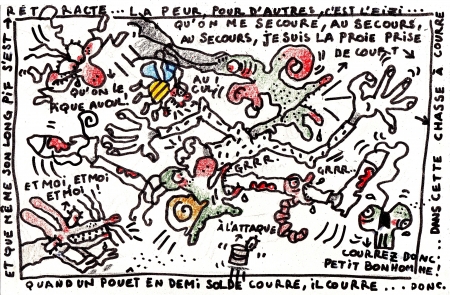 RÉTRACTE... LA PEUR, POUR D'AUTRES, C'EST L'EIZI...
QU'ON ME SECOURE, AU SECOURS,
AU SECOURS, JE SUIS LA PROIE PRISE
DE COURT
...DANS CETTE CHASSE À COURRE
QU'ON LE
PIQUE AU CUL!
AU
CUL!
GRRR.
GRRR.
ET MOI, ET MOI
ET MOI!
À L'ATTAQUE
COURREZ DONC.
PETIT BONHOMME!
ET QUE MÊME SON LONG PIF S'EST
QUAND UN POUÊT EN DEMI SOLDE COURRE, IL COURRE ....DONC.